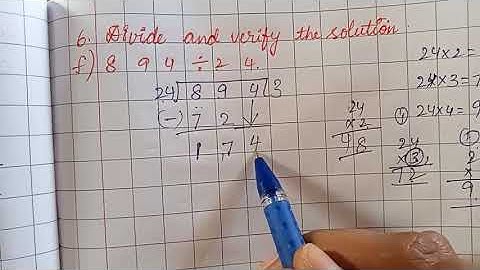 6. Divide and verify the solution.
f) 8 9 4 ÷ 2 4.
24 8 9 4 3
(-) 7 2
1 7 4
24
×2
48
24×2=
24×3=7
24×4=
24
×3
72
2
×
9